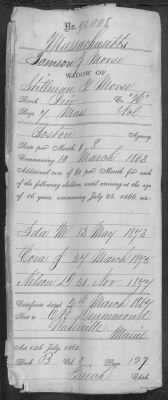 No. 91,008
Massachusetts
Tamson J Morse
WIDOW OF
Stillman F Morse
Rank Priv Co "H"
Reg't 7 Mass Vol
Boston Agency.
Rate per Month $ 8
Commencing 10 March 1863
Additional sum of $2 per Month for each
of the following children until arriving at the age
of 16 years, commencing July 25, 1866, viz:
Ida M 13 May 1873
Cora J 27 March 1875
Nelson 21 Nov 1877
Certificate dated March 1867
Sent to E R Drummond
Waterville
Maine
Act 14th July, 1862.
Book B Vol 3 Page 127
Clerk